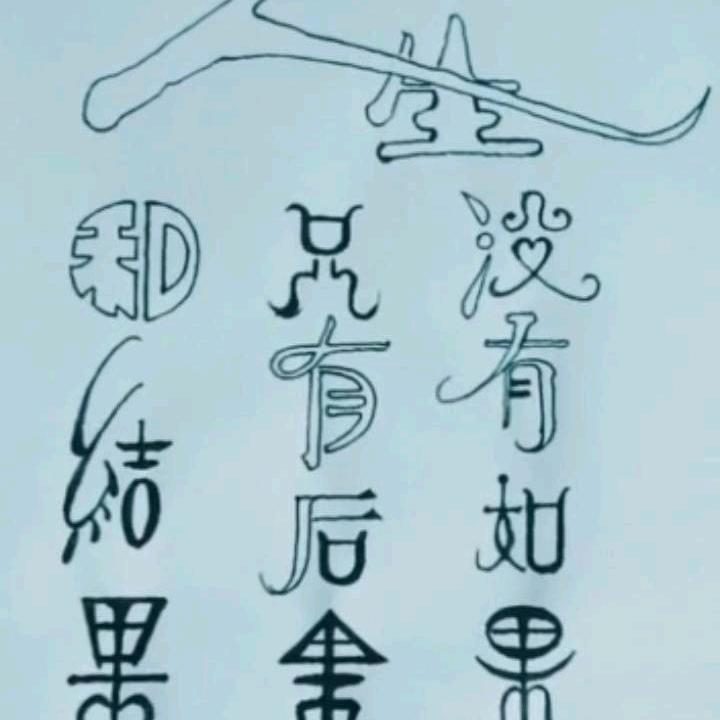 人生
没有如果
只有后果
和结果